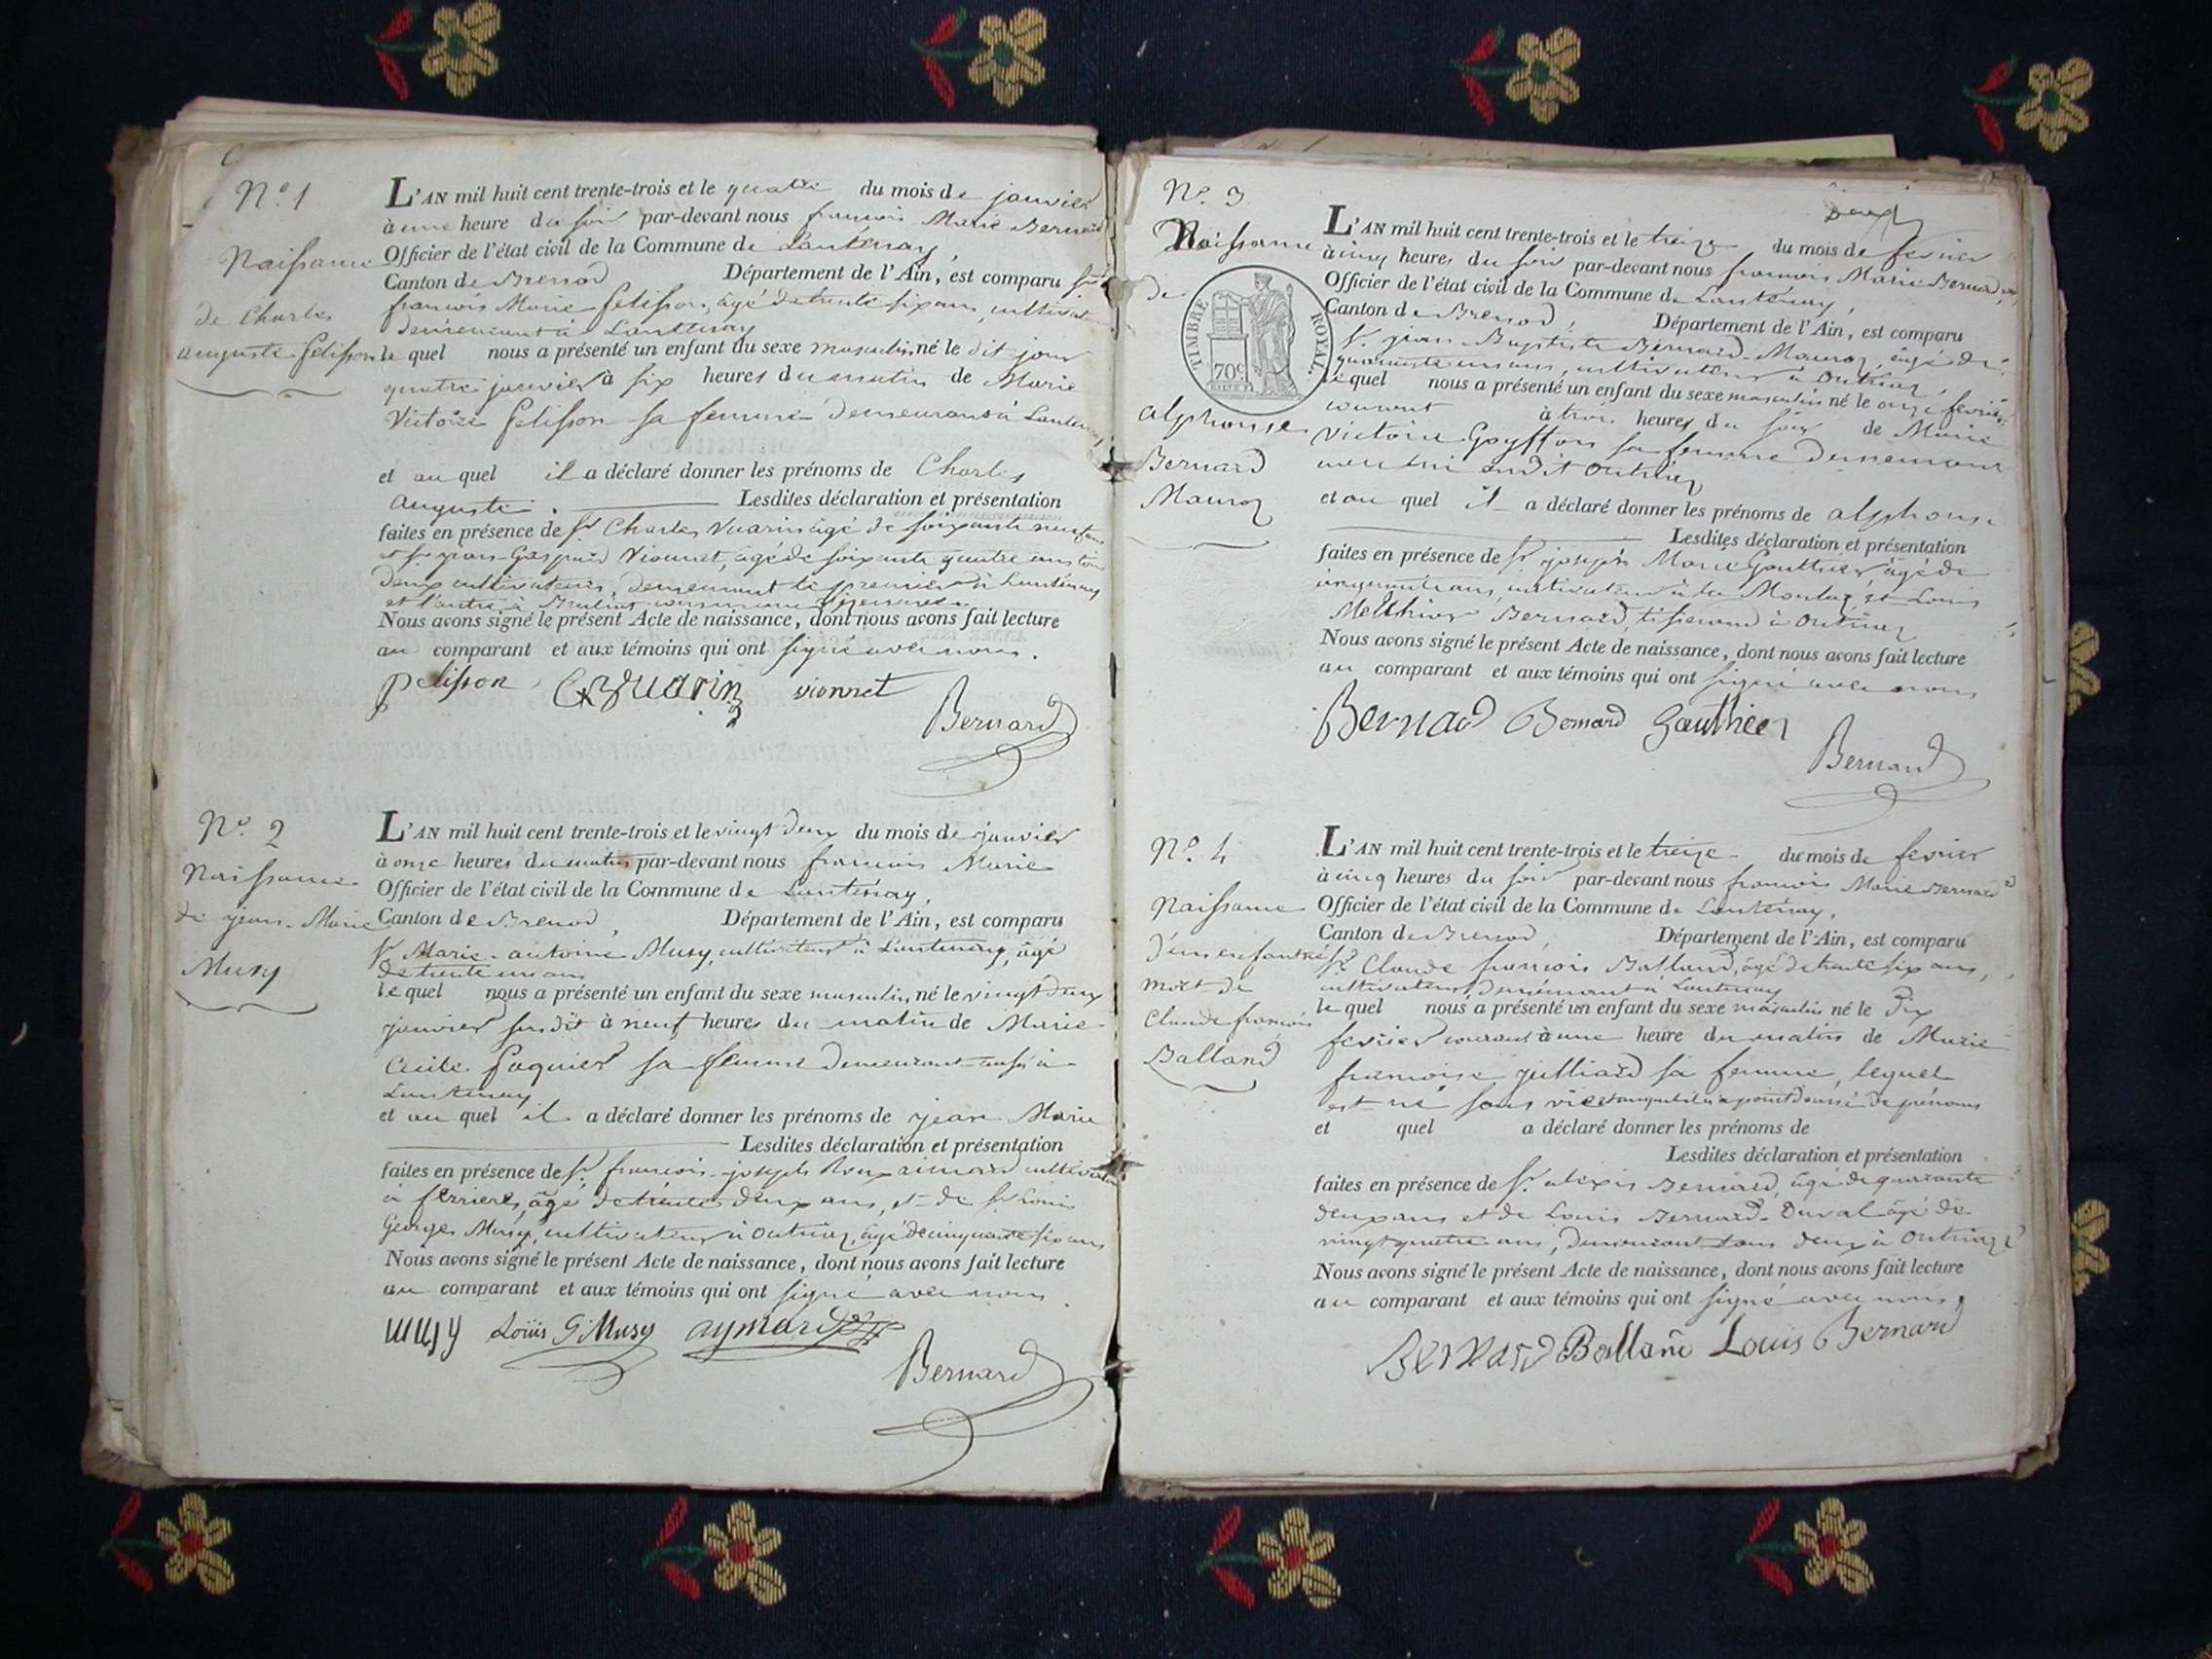 N.o 1
Naissance
de Charles
auguste Pelisson
L'AN mil huit cent trente-trois et le quatre du mois de janvier
à une heure du soir par-devant nous françois Marie Bernard
Officier de l'état civil de la Commune de Lantenay,
Canton de Brenod Département de l'Ain, est comparu Sr
françois Marie Pelisson, âgé de trente six ans, cultivat
demeurant à Lantenay
le quel nous a présenté un enfant du sexe masculin, né le dit jour
quatre janvier à six heures du matin de Marie
Victoire Pelisson sa femme demeurant à Lantenay
et au quel il a déclaré donner les prénoms de Charles
auguste. Lesdites déclaration et présentation
faites en présence de Sr Charles Vuarin âgé de soixante neuf ans
et Sr jean Gaspard Vionnet, âgé de soixante quatre ans tous
deux cultivateurs, demeurant le premier à Lantenay
et l'autre à
Nous avons signé le présent Acte de naissance, dont nous avons fait lecture
au comparant et aux témoins qui ont signé avec nous.
pelisson Vuarin vionnet
Bernard
N.o 2
Naissance
de jean-Marie
Musy
L'AN mil huit cent trente-trois et le vingt deux du mois de janvier
à onze heures du matin par-devant nous françois Marie
Officier de l'état civil de la Commune de Lantenay,
Canton de Brenod, Département de l'Ain, est comparu
Sr Marie-antoine Musy, cultivateur à Lantenay, âgé
de trente un ans
le quel nous a présenté un enfant du sexe masculin, né le vingt deux
janvier susdit à neuf heures du matin de Marie
Cecile Paquier sa femme demeurant aussi à
Lantenay
et au quel il a déclaré donner les prénoms de jean Marie
Lesdites déclaration et présentation
faites en présence de Sr. françois-joseph Roux aimard cultivateur
à ferriere, âgé de trente deux ans, et de Sr Louis
Georges Musy, cultivateur à Outriaz, âgé de cinquante six ans
Nous avons signé le présent Acte de naissance, dont nous avons fait lecture
au comparant et aux témoins qui ont signé avec nous.
musy Louis G Musy aymard
Bernard
deux
N.o 3
Naissance
de
TIMBRE ROYAL.
70c
alphonse
Bernard
Mauroz
L'AN mil huit cent trente-trois et le treize du mois de fevrier
à cinq heures du soir par-devant nous françois Marie Bernard
Officier de l'état civil de la Commune de Lantenay,
Canton de Brenod, Département de l'Ain, est comparu
Sr. jean-Baptiste Bernard-Mauroz, âgé de
quarante un ans, cultivateur à Outriaz,
le quel nous a présenté un enfant du sexe masculin né le onze fevrier
courant à trois heures du soir de Marie
Victoire Goyffon sa femme demeurant
avec lui audit Outriaz
et au quel il a déclaré donner les prénoms de alphonse
Lesdites déclaration et présentation
faites en présence de Sr joseph Marie Gauthier âgé de
cinquante ans, cultivateur à la et Louis
Melchior Bernard, tisserand à Outriaz
Nous avons signé le présent Acte de naissance, dont nous avons fait lecture
au comparant et aux témoins qui ont signé avec nous
Bernard Bernard Gauthier
Bernard
N.o 4
Naissance
d'un enfant né
mort de
Claude françois
Balland
L'AN mil huit cent trente-trois et le treize du mois de fevrier
à cinq heures du soir par-devant nous françois Marie Bernard
Officier de l'état civil de la Commune de Lantenay,
Canton de Brenod, Département de l'Ain, est comparu
Sr. Claude françois Balland, âgé de trente six ans,
cultivateur, demeurant à Lantenay
le quel nous a présenté un enfant du sexe masculin né le dix
fevrier courant à une heure du matin de Marie
françoise julliard sa femme, lequel
est né sans vie et auquel il n'a point donné de prénoms
et quel a déclaré donner les prénoms de
Lesdites déclaration et présentation
faites en présence de Sr. alexis Bernard, âgé de quarante
deux ans et de Louis Bernard-Duval âgé de
vingt quatre ans, demeurant tous deux à Outriaz
Nous avons signé le présent Acte de naissance, dont nous avons fait lecture
au comparant et aux témoins qui ont signé avec nous,
Bernard Balland Louis Bernard